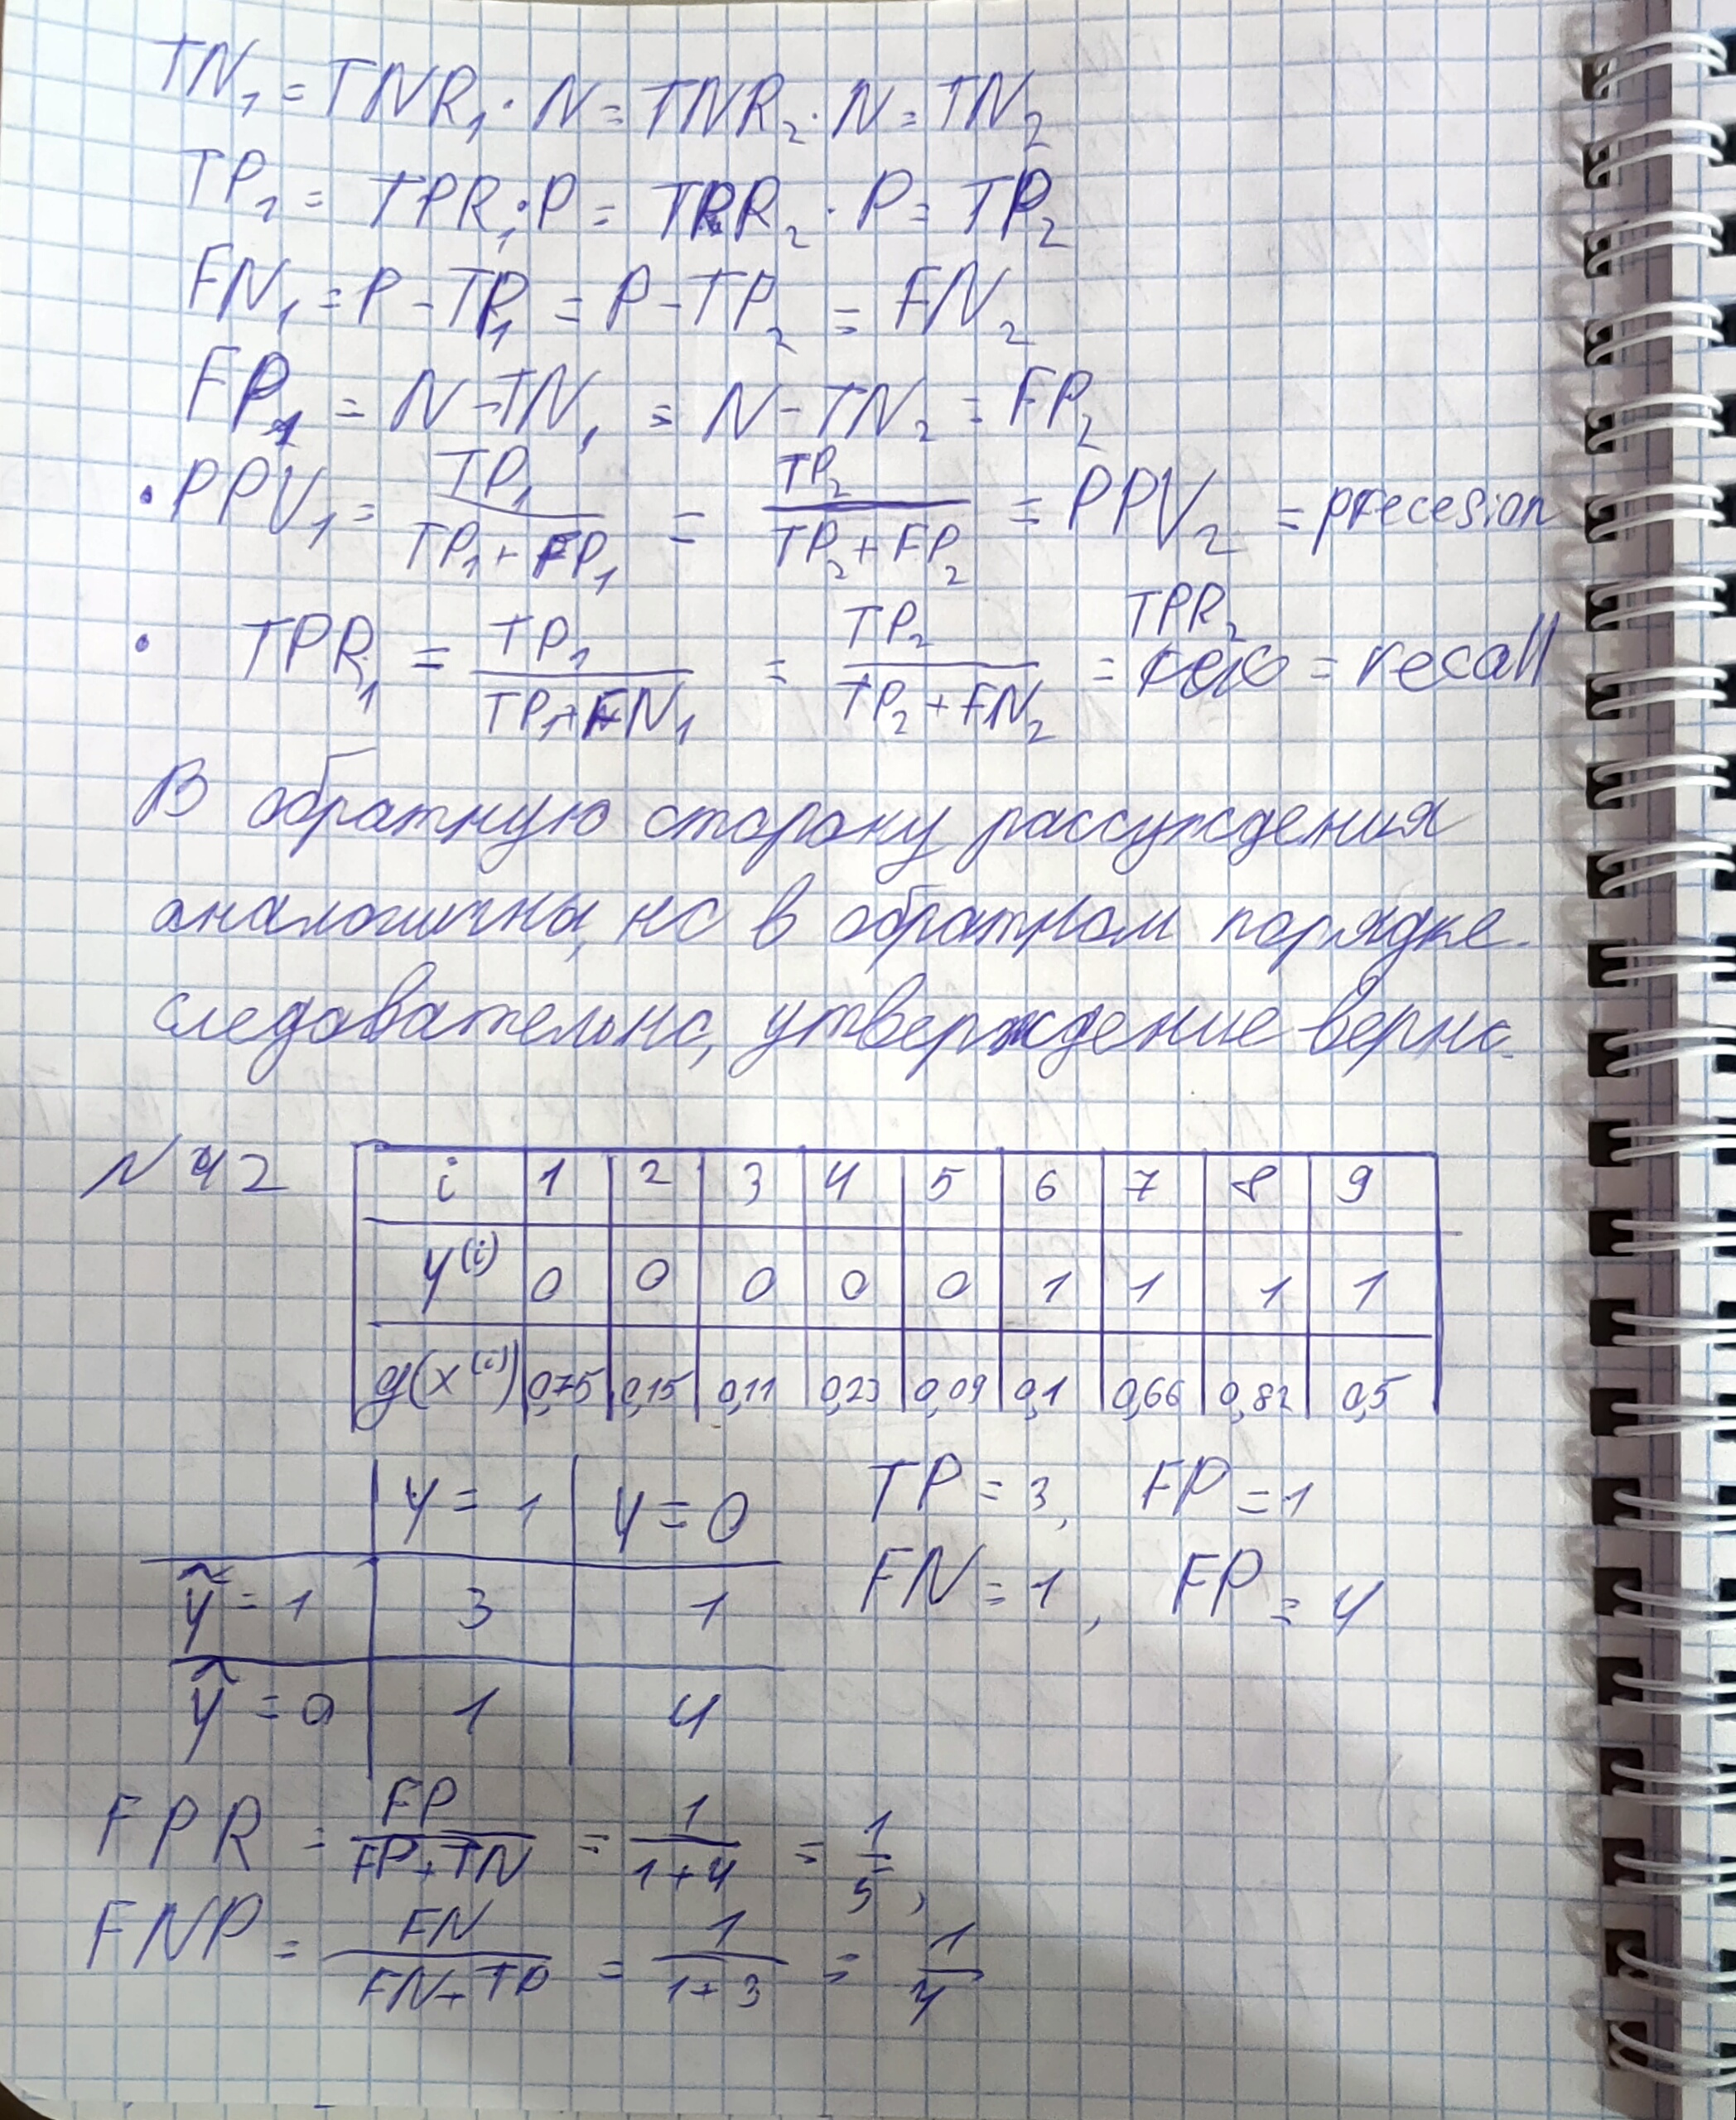 TN₁ = TNR₁ · N = TNR₂ · N = TN₂
TP₁ = TPR₁ · P = TPR₂ · P = TP₂
FN₁ = P - TP₁ = P - TP₂ = FN₂
FP₁ = N - TN₁ = N - TN₂ = FP₂
• PPV₁ = TP₁/(TP₁ + FP₁) = TP₂/(TP₂ + FP₂) = PPV₂ = precesion
• TPR₁ = TP₁/(TP₁ + FN₁) = TP₂/(TP₂ + FN₂) = TPR₂ = recall
В обратную сторону рассуждения
аналогичны, но в обратном порядке.
следовательно, утверждение верно.
N 42
i 1 2 3 4 5 6 7 8 9
y⁽ⁱ⁾ 0 0 0 0 0 1 1 1 1
g(x⁽ⁱ⁾) 0,75 0,15 0,11 0,23 0,09 0,1 0,66 0,82 0,5
y = 1 y = 0
ỹ = 1 3 1
ỹ = 0 1 4
TP = 3, FP = 1
FN = 1, FP = 4
FPR = FP/(FP + TN) = 1/(1+4) = 1/5,
FNP = FN/(FN + TP) = 1/(1+3) = 1/4